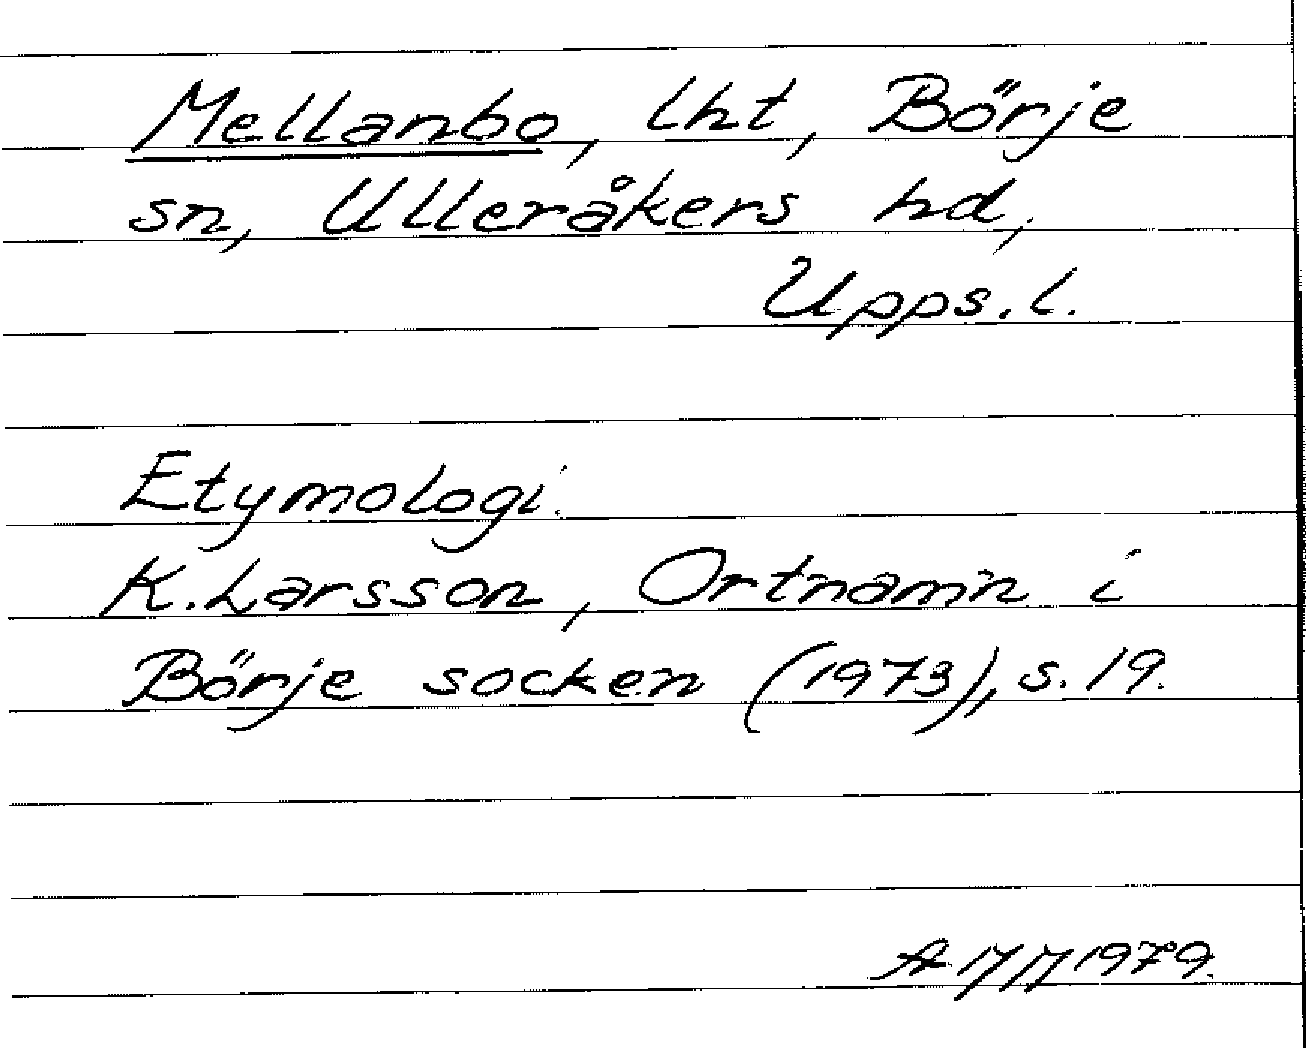 Mellanbo, lht, Börje
sn, Ulleråkers hd,
Upps. l.
Etymologi.
K. Larsson, Ortnamn i
Börje socken (1973), s. 19.
1979.